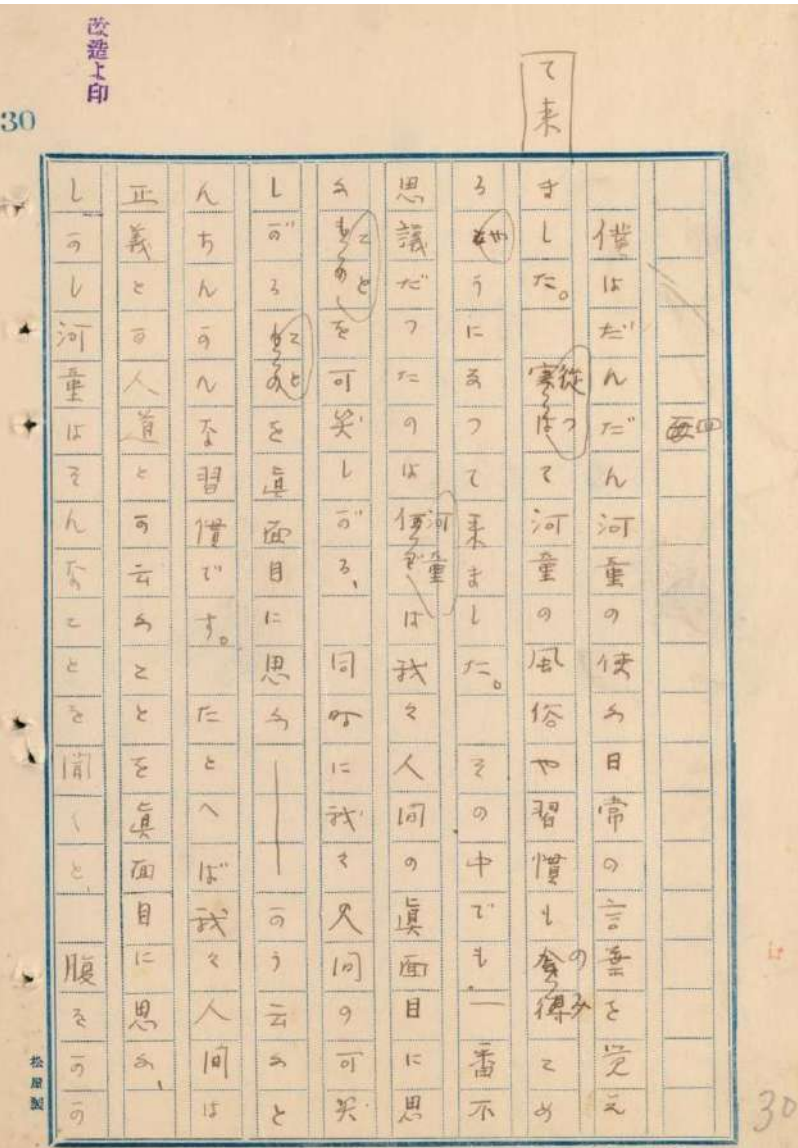 30
改造よ印
四
僕はだんだん河童の使ふ日常の言葉を覚え
て来
ました。従つて河童の風俗や習慣ものみこめ
るやうになつて来ました。その中でも一番不
思議だつたのは河童は我々人間の眞面目に思
ふことを可笑しがる、同時に我々人間の可笑
しがることを眞面目に思ふ――かう云ふと
んちんかんな習慣です。たとへば我々人間は
正義とか人道とか云ふことを眞面目に思ふ、
しかし河童はそんなことを聞くと、腹をかか
松屋製
30